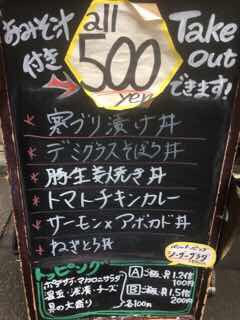 おみそ汁
付き
all
500
yen
Take
Out
できます!
寒ブリ漬け丼
デミグラスそぼろ丼
豚生姜焼き丼
トマトチキンカレー
サーモン×アボカド丼
ねぎとろ丼
トッピング
ポテサラ・マカロニサラダ
温玉・沬漬・チーズ
具の大盛り 各100円
A ご飯1.2倍
100円
B ご飯1.5倍
200円
シーザーサラダ